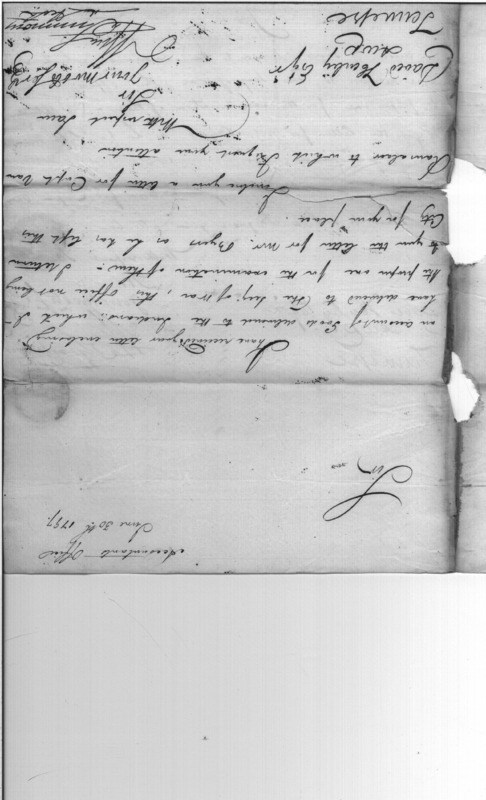 Accountants Office
June 30th 1797.
Sir
I have received your letter enclosing
an account of Goods delivered to the Indians: which I
have delivered to the Secy. of War, this Office not being
the proper one for the examination of them. I return
to you the letter for Mr. Byers as he has left this
City for your place.
I enclose you a letter for Capt. Van
Rensselaer to which I request your attention
With respect I am
Sir
Your mo ob Serv
Wm Simmons
Acct
David Henley Esqr
Agent
Tennessee